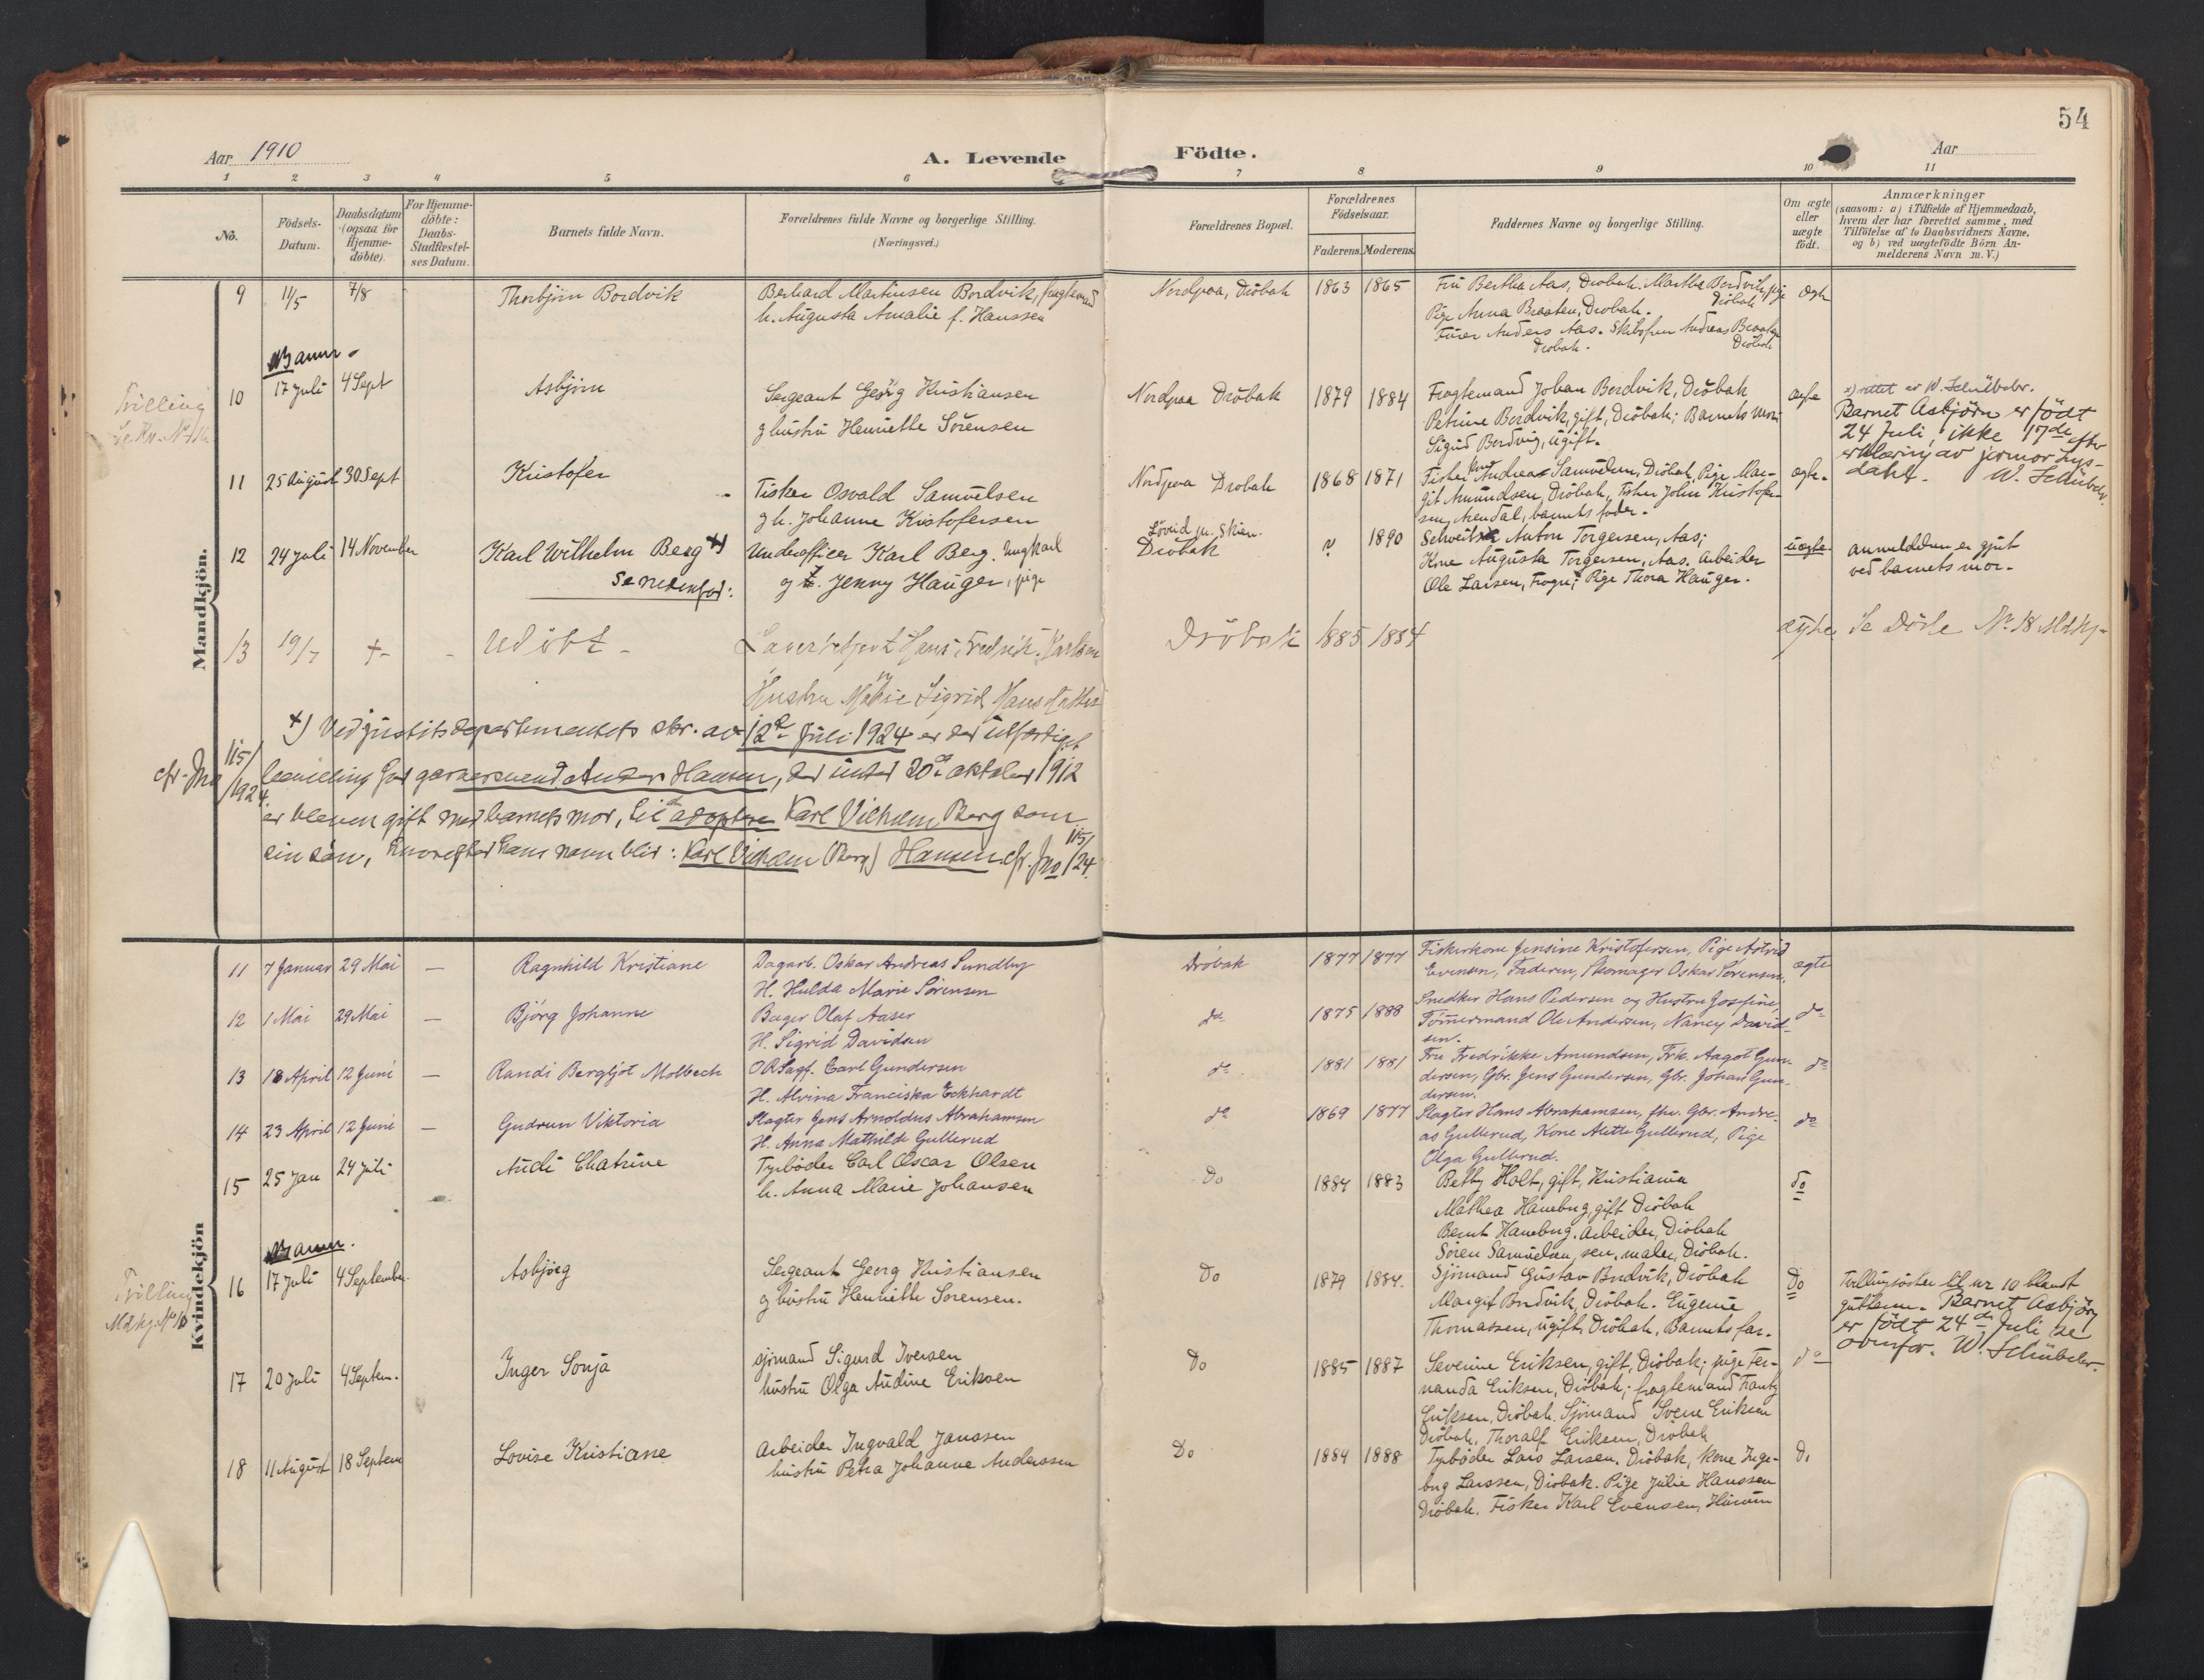 54
Aar 1910
A. Levende Födte.
Aar
1 2 3 4 5 6 7 8 9 10 11
No.
Födsels-Datum.
Daabsdatum (ogsaa for Hjemmedöbte).
For Hjemmedöbte: Daabs-Stadfæstelses Datum.
Barnets fulde Navn.
Forældrenes fulde Navne og borgerlige Stilling. (Næringsvei.)
Forældrenes Bopæl.
Forældrenes Födselsaar.
Faderens. Moderens.
Faddernes Navne og borgerlige Stilling.
Om ægte eller uægte födt.
Anmærkninger
(saasom: a) i Tilfælde af Hjemmedaab,
hvem der har forrettet samme, med
Tilföielse af to Daabsvidners Navne.
og b) ved uægtefödte Börn An-
melderens Navn m. V.)
Mandkjön.
9 11/5 7/8 Thorbjörn Bordvik
Berhard Martinsen Bordvik, fragtemand
h. Augusta Amalie f. Hanssen
Nordpaa, Dröbak 1863 1865
Fru Bertha Aas, Drobak. Martha Bordvik, pige Dröbak
Pige Anna Braaten, Drobak.
Furer Anders Aas. Skibsfurer Andreas Braaten
Drobak. Dröbak
ægte
Tvilling
10 17 Juli 4 Sept Asbjörn
Sergeant Georg Kristiansen
g hustru Henriette Sörensen
Nordpaa Dröbak 1879 1884
Fragtemand Johan Bordvik, Dröbak
Petrine Bordvik, gift, Dröbak; Barnets mor;
Sigrid Bordvig, ugift.
ægte
x) rettet av W. Schübeler.
Barnet Asbjörn er födt
24 Juli, ikke 17de efter
erklæring av jormor Lys-
dahl. W. Schübeler
11 25 August 30 Sept Kristofer
Fisker Osvald Samuelsen
g h. Johanne Kristofersen
Nordpaa Drobak 1868 1871
Fisker Andreas Samuelsen, Dröbak, Pige Mar-
git Amundsen, Dröbak, Fisker John Kristofer-
sen, Arendal, barnets fader.
ægte.
12 24 juli 14 November Karl Wilhelm Berg +)
se nedenfor:
Underofficer Karl Berg. Ungkarl
og Jenny Hauger, pige
Skien.
Drobak
? 1890
Anton Torgersen, Aas;
Kone Augusta Torgersen, Aas. Arbeider
Ole Larsen, Frogn; Pige Thora Hauger.
uægte.
anmeldelsen er gjort
ved barnets mor.
13 19/7 + - Udöbt -
Hans Fredrik Karlsen
Hustru Marie Sigrid
Dröbak 1885 1884
ægte Se Döde No 18 Mdkj.
+) Ved Justitsdepartementets skr. av 12te Juli 1924 er det utfærdiget
cfr. Jno 115/1924.
bevilling for garversvend Anders Hansen, der under 20de oktober 1912
er bleven gift med barnets mor, til at adoptere Karl Vilhelm Berg som
sin sön, hvorefter hans navn blir: Karl Vilhelm (Berg) Hansen. cfr. Jno 115/24.
Kvindekjön
11 7 Januar 29 Mai — Ragnhild Kristiane
Dagarb. Oskar Andreas Sundby
H. Hulda Marie Sörensen
Dröbak 1877 1877
Fiskerkone Jensine Kristofersen, Pige Astrid
Evensen, Faderen, Skomager Oskar Sörensen.
ægte
12 1 Mai 29 Mai — Björg Johanne
Bager Olaf Aaser
H. Sigrid Davidsen
do 1875 1888
Snedker Hans Pedersen og Hustru Josefine,
Tömmermand Ole Andersen, Nancy David-
sen.
do
13 18 April 12 Juni — Randi Bergljot Molbech
O.R.Sagf. Carl Gundersen
H. Alvina Franciska Eckhardt
do 1881 1881
Fru Fredrikke Amundsen, Frk. Aagot Gun-
dersen, Gbr. Jens Gundersen, Gbr. Johan Gun-
dersen.
do
14 23 April 12 Juni — Gudrun Viktoria
Slagter Jens Arnoldus Abrahamsen
H. Anna Mathilde Gullerud
do 1869 1877
Slagter Hans Abrahamsen, fhv. Gbr. Andre-
as Gullerud, Kone Alette Gullerud, Pige
Olga Gullerud.
do
15 25 Jan 24 Juli Audi Chatrine
Fyrböder Carl Oscar Olsen
h. Anna Marie Johansen
Do 1884 1883
Betty Holt, gift, Kristiania
Mathea Haneborg, gift Dröbak
Bernt Haneborg, arbeider, Drobak
Sören Samuelsen, sen. maler, Dröbak.
do
Tvilling
Mdkj. No 10
16 17 Juli 4 September. Asbjörg
Sergeant Georg Kristiansen
g hustru Henriette Sorensen.
Do 1879 1884.
Sjömand Gustav Bordvik, Dröbak
Margit Bordvik, Dröbak. Eugenie
Thomassen, ugift, Dröbak, Barnets far.
Do
Tvillingsöster til nr 10 blandt
guttene. Barnet Asbjörg
er födt 24de Juli se
ovenfor. W. Schübeler.
17 20 Juli 4 Septem. Inger Sonja
sjömand Sigurd Iversen
hustru Olga Audine Eriksen
Do 1885 1887
Severine Eriksen, gift, Dröbak; pige Fer-
nanda Eriksen, Dröbak; fragtemand Frantz
Eriksen, Dröbak. Sjömand Sverre Eriksen
Dröbak. Thoralf Eriksen, Drobak
do
18 11 August 18 Septem Lovise Kristiane
Arbeider Ingvald Janssen
hustru Petra Johanne Anderssen
Do 1884 1888
Fyrböder Lars Larsen. Dröbak, kone Inge-
borg Larssen, Dröbak. Pige Julie Hanssen
Dröbak. Fisker Karl Evensen, Hurum
Do